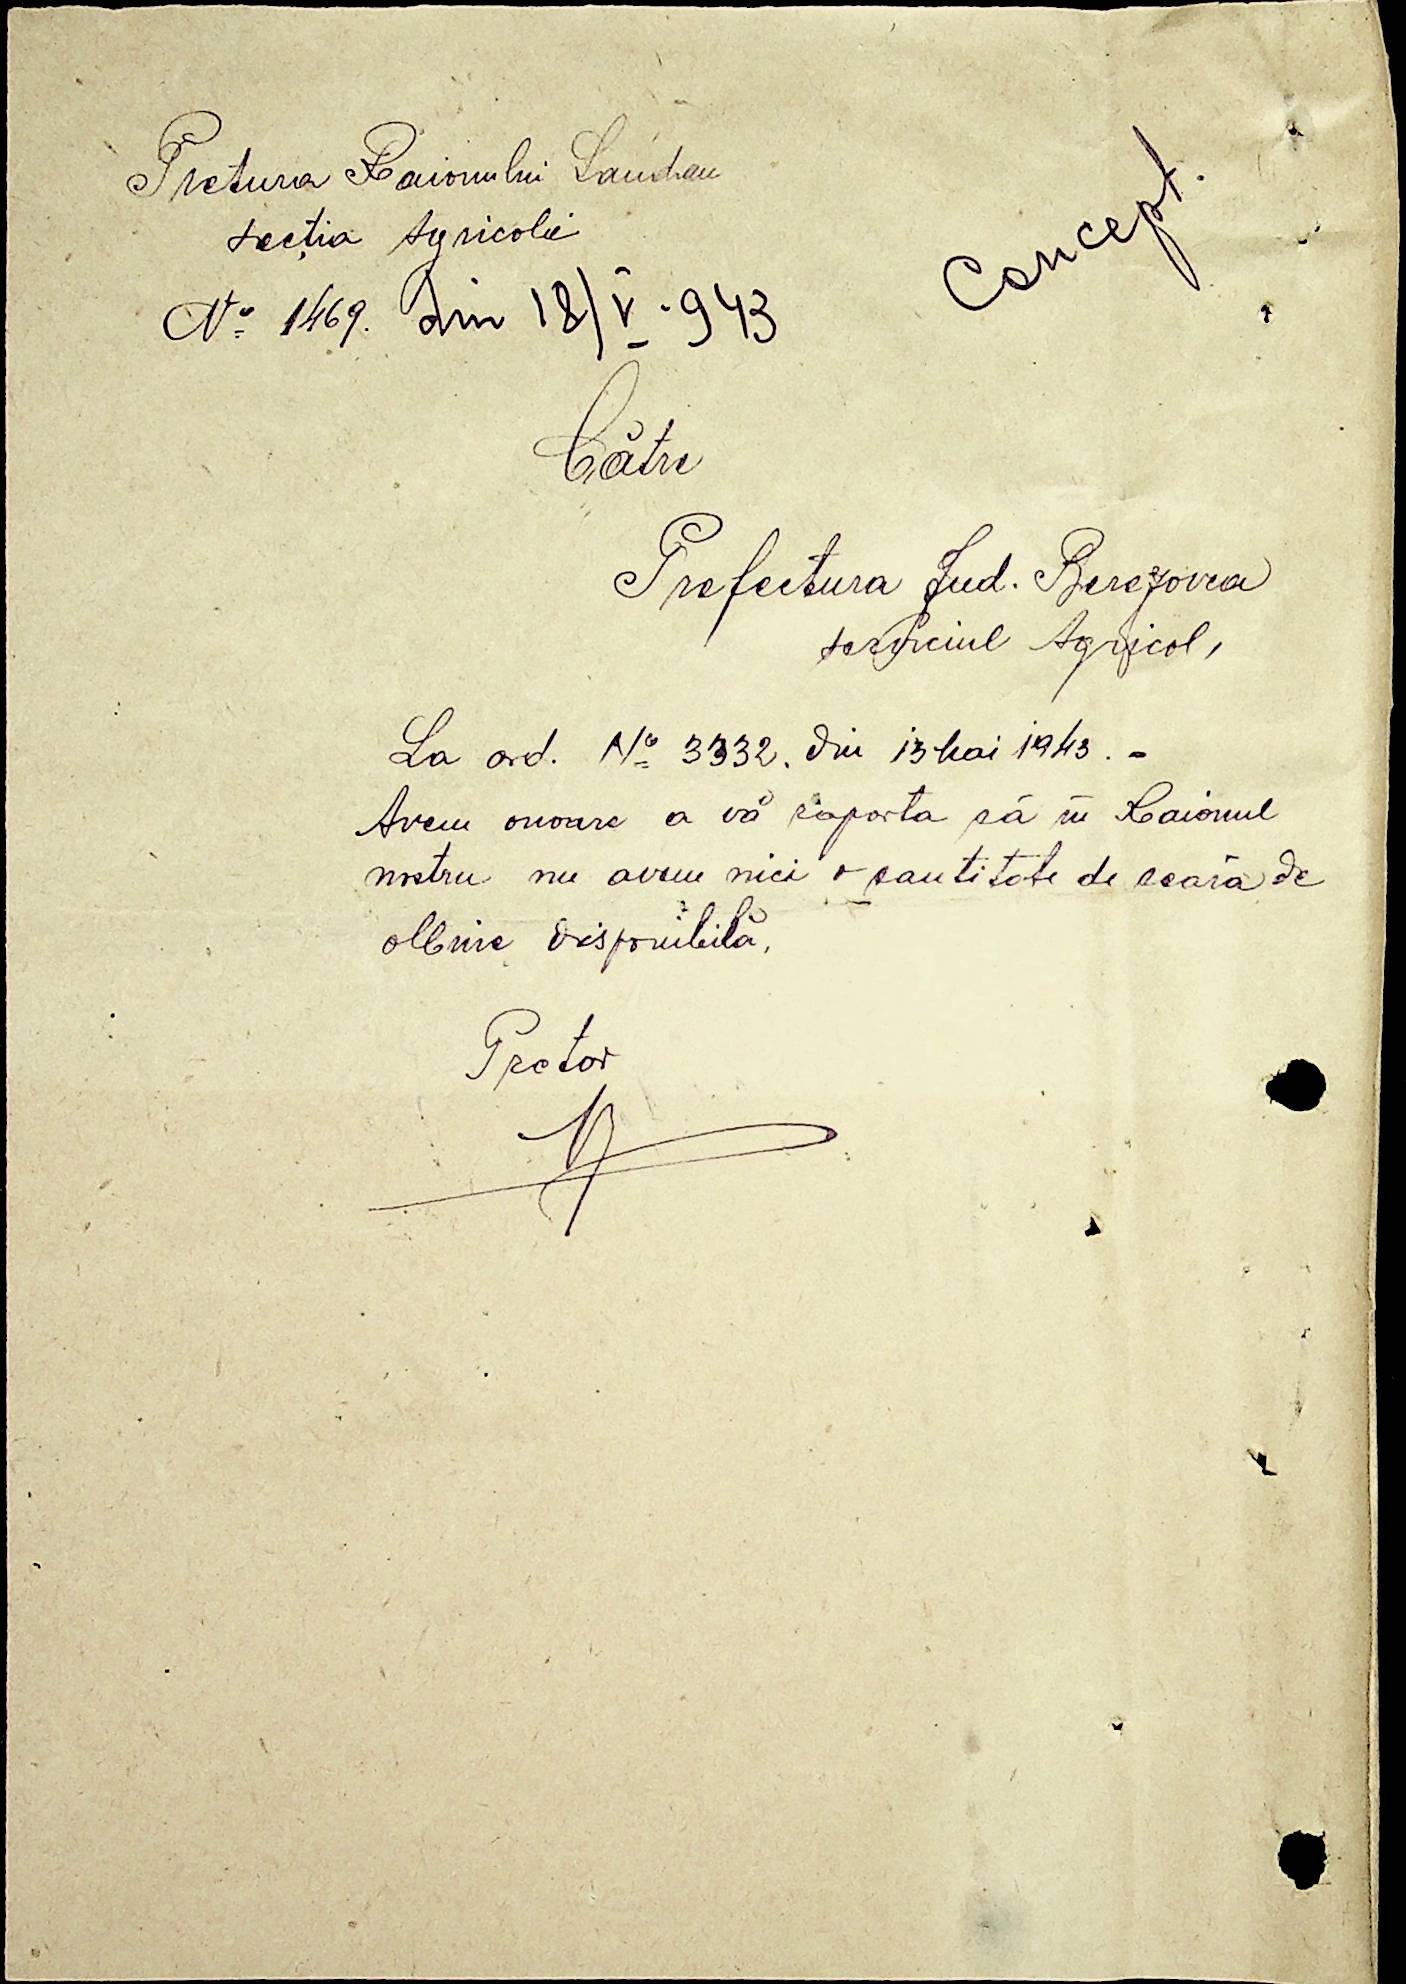 Pretura Raionului Landau
secția Agricolă
Concept.
No 1469. din 18/V.943
Către
Prefectura Jud. Berezovca
serviciul Agricol,
La ord. No 3332. din 13 Mai 1943. -
Avem onoare a vă raporta că în Raionul
nostru nu avem nici o cantitate de ceară de
albine disponibilă,
Pretor